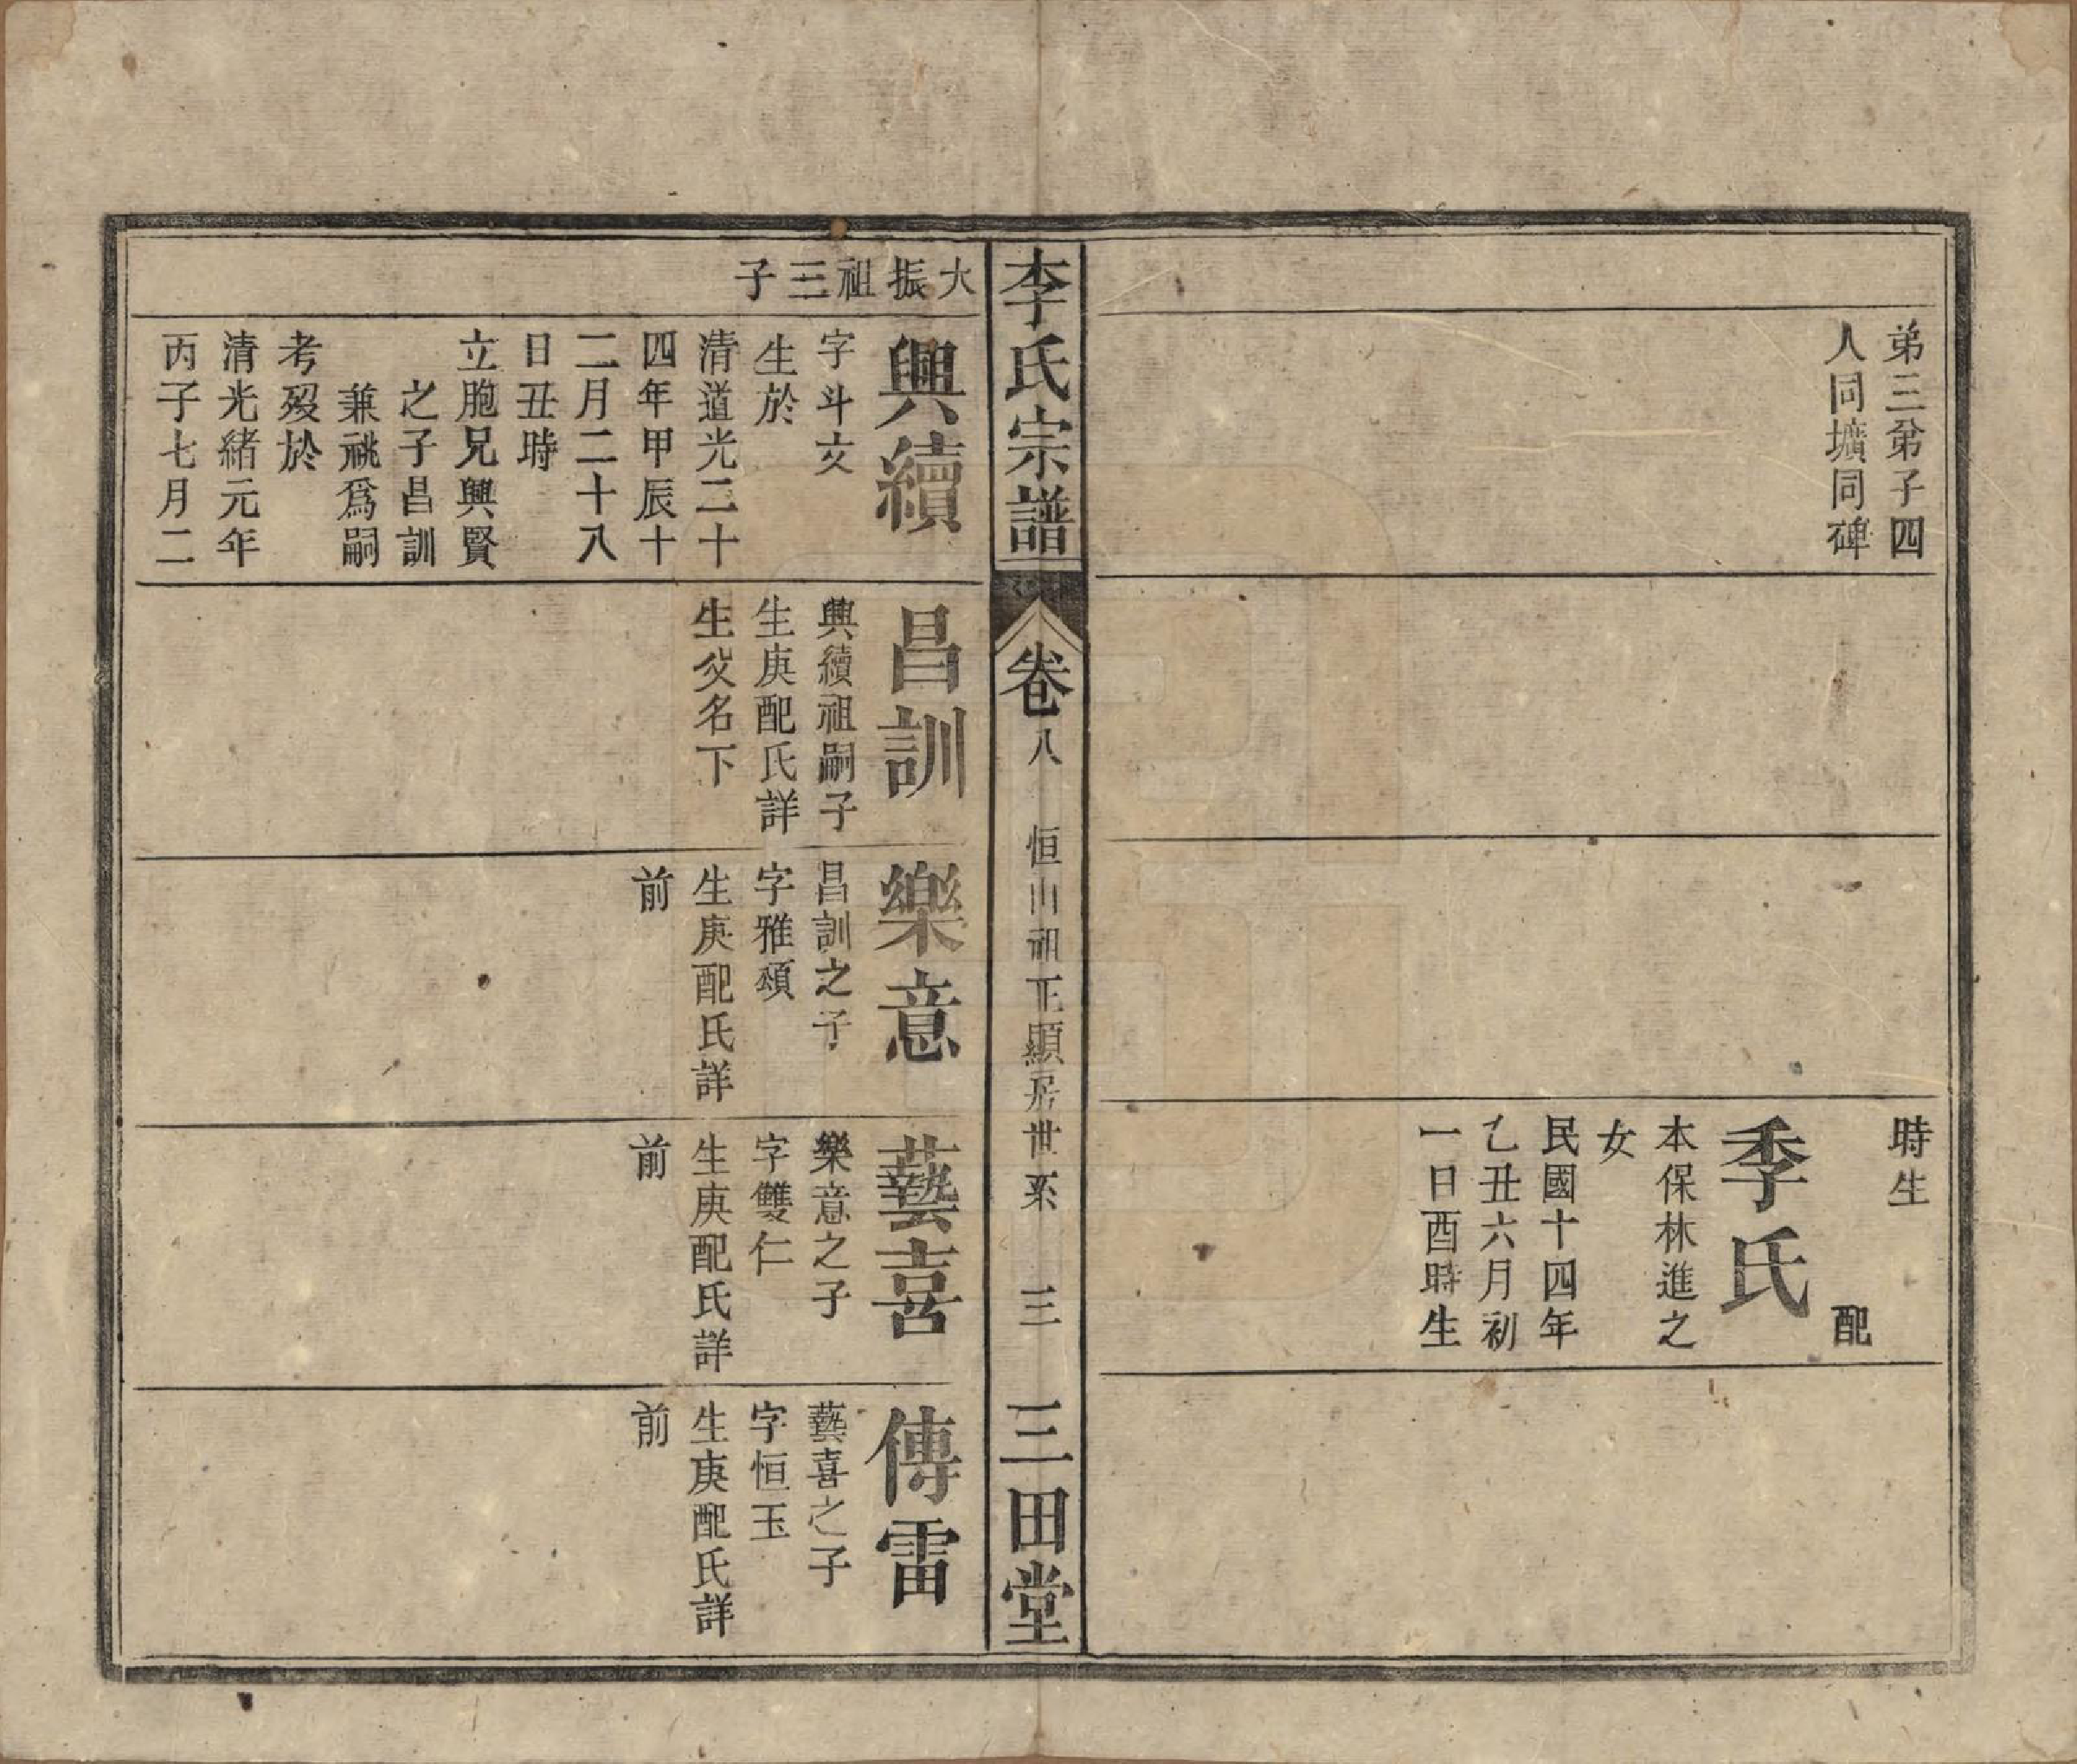 弟三弟子四
人同壙同碑
時生
配
季氏
本保林進之
女
民國十四年
乙丑六月初
一日酉時生
李氏宗譜
卷八
恒山祖正顯房世系
三
三田堂
大振祖三子
興續
字斗文
生於
清道光二十
四年甲辰十
二月二十八
日丑時
立胞兄興賢
之子昌訓
兼祧爲嗣
考歿於
清光緒元年
丙子七月二
昌訓
興續祖嗣子
生庚配氏詳
生父名下
樂意
昌訓之子
字雅頌
生庚配氏詳
前
藝喜
樂意之子
字雙仁
生庚配氏詳
前
傳雷
藝喜之子
字恒玉
生庚配氏詳
前